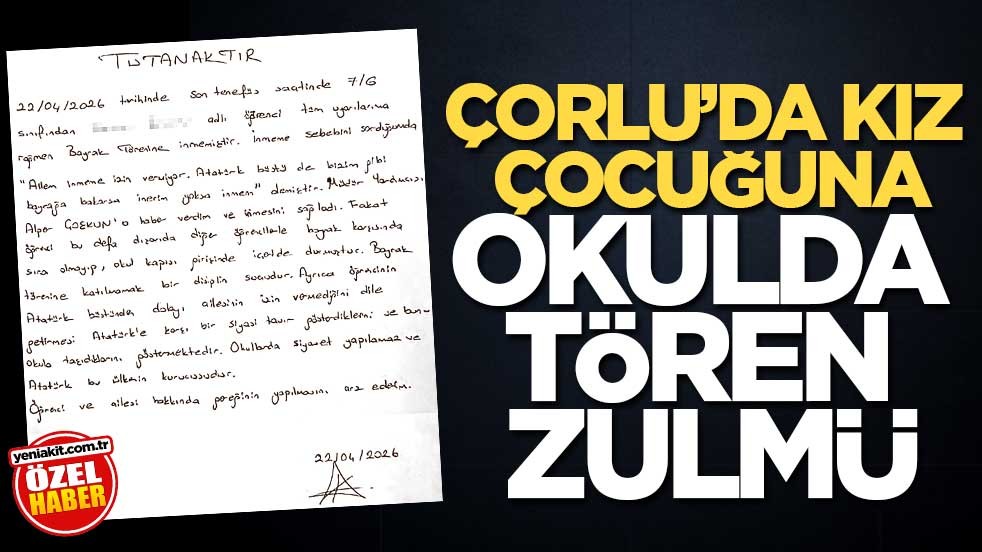 TUTANAKTIR
22/04/2026 tarihinde son teneffüs saatinde 7/G
sınıfından adlı öğrenci tüm uyarılarıma
rağmen Bayrak Törenine inmemiştir. İnmeme sebebini sorduğumda
"Ailem inmeme izin veriyor. Atatürk büstü de bizim gibi
bayrağa bakarsa inerim yoksa inmem" demiştir. Müdür Yardımcısı
Alper COŞKUN'a haber verdim ve inmesini sağladı. Fakat
öğrenci bu defa dışarıda diğer öğrencilerle bayrak karşısında
sıra olmayıp, okul kapısı girişinde içeride durmuştur. Bayrak
törenine katılmamak bir disiplin suçudur. Ayrıca öğrencinin
Atatürk büstünden dolayı ailesinin izin vermediğini dile
getirmesi Atatürk'e karşı bir siyasi tavır gösterdiklerini ve bunu
okula taşıdıklarını göstermektedir. Okullarda siyaset yapılamaz ve
Atatürk bu ülkenin kurucusudur.
Öğrenci ve ailesi hakkında gereğinin yapılmasını arz ederim.
22/04/2026
yeniakit.com.tr
ÖZEL
HABER
ÇORLU'DA KIZ
ÇOCUĞUNA
OKULDA
TÖREN
ZULMÜ